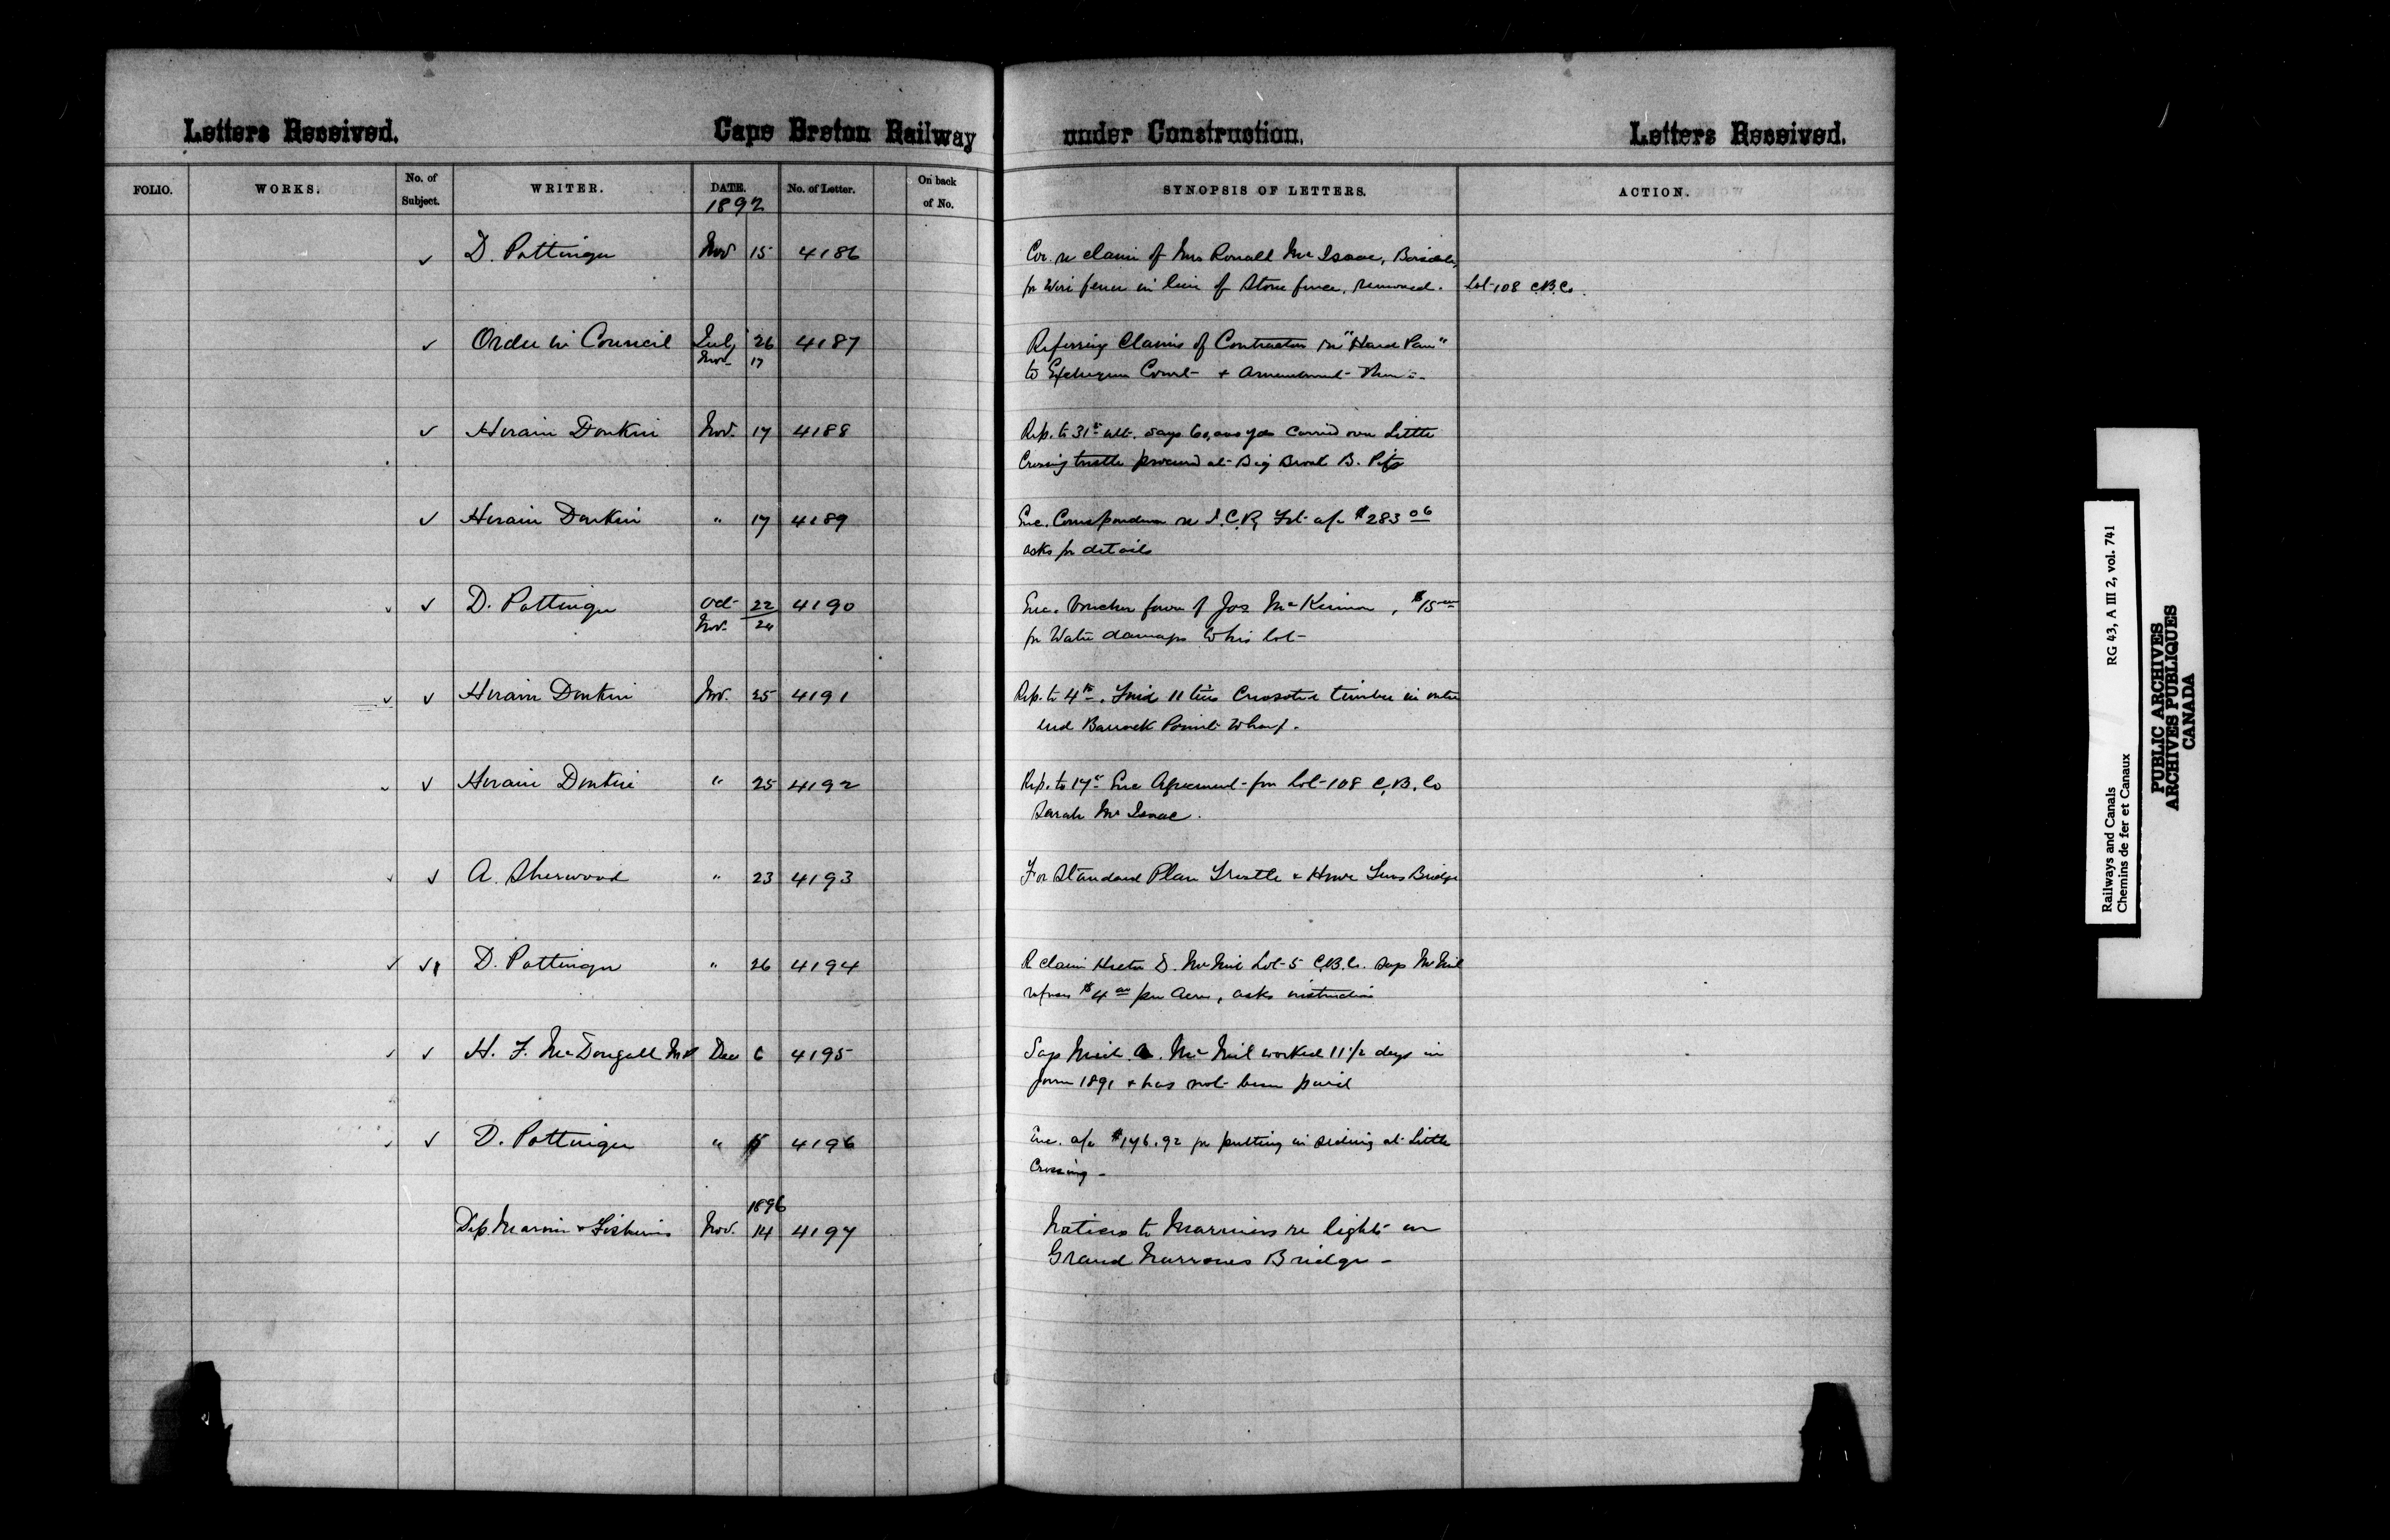 Letters Received. Cape Breton Railway under Construction. Letters Received.
FOLIO. WORKS. No. of Subject. WRITER. DATE. No. of Letter. On back of No. SYNOPSIS OF LETTERS. ACTION.
1892
✓ D. Pottinger Nov 15 4186 Cor. re claim of Mrs Ronald McIsaac,
for Wire fence in lieu of Stone fence, removed. Lot 108 C.B. Co.
✓ Order in Council July 26 4187 Referring Claims of Contractors re "Hard Pan"
Nov. 17 to Exchequer Court &
✓ Hiram Donkin Nov. 17 4188 Rep. to 31st ult. says 60,000 yds Carried over Little
Crossing trestle procured at Big Brook B. Pits
✓ Hiram Donkin " 17 4189 Enc. Correspondence re I.C.R. Frt a/c $283 06
asks for details
✓ ✓ D. Pottinger Oct 22 4190 Enc. Voucher favor of Jos McKinnon, $15
Nov. 24
for Water damages to his lot
✓ ✓ Hiram Donkin Nov. 25 4191 Rep. to 4th. 11 Creosoted timber in outer
end Barrack Point Wharf.
✓ ✓ Hiram Donkin " 25 4192 Rep. to 17th Enc Agreement for Lot 108 C.B. Co
Sarah McIsaac.
✓ ✓ A. Sherwood " 23 4193 For Standard Plan Trestle & Howe Truss Bridge
✓ ✓ D. Pottinger " 26 4194 Re claim Hector D. McNeil Lot 5 C.B.C. says McNeil
refuses $4 00 per Acre, asks instructions
✓ ✓ H. F. McDougall M.P. Dec 6 4195 Says Neil A. McNeil worked 11 1/2 days in
June 1891 & has not been paid
✓ ✓ D. Pottinger " 4196 Enc. a/c $176.92 for putting in siding at Little
Crossing -
1896
Dep. Marine & Fisheries Nov. 14 4197 Notices to Mariners re lights on
Grand Narrows Bridge -
Railways and Canals RG 43, A III 2, vol. 741
Chemins de fer et Canaux
PUBLIC ARCHIVES
ARCHIVES PUBLIQUES
CANADA